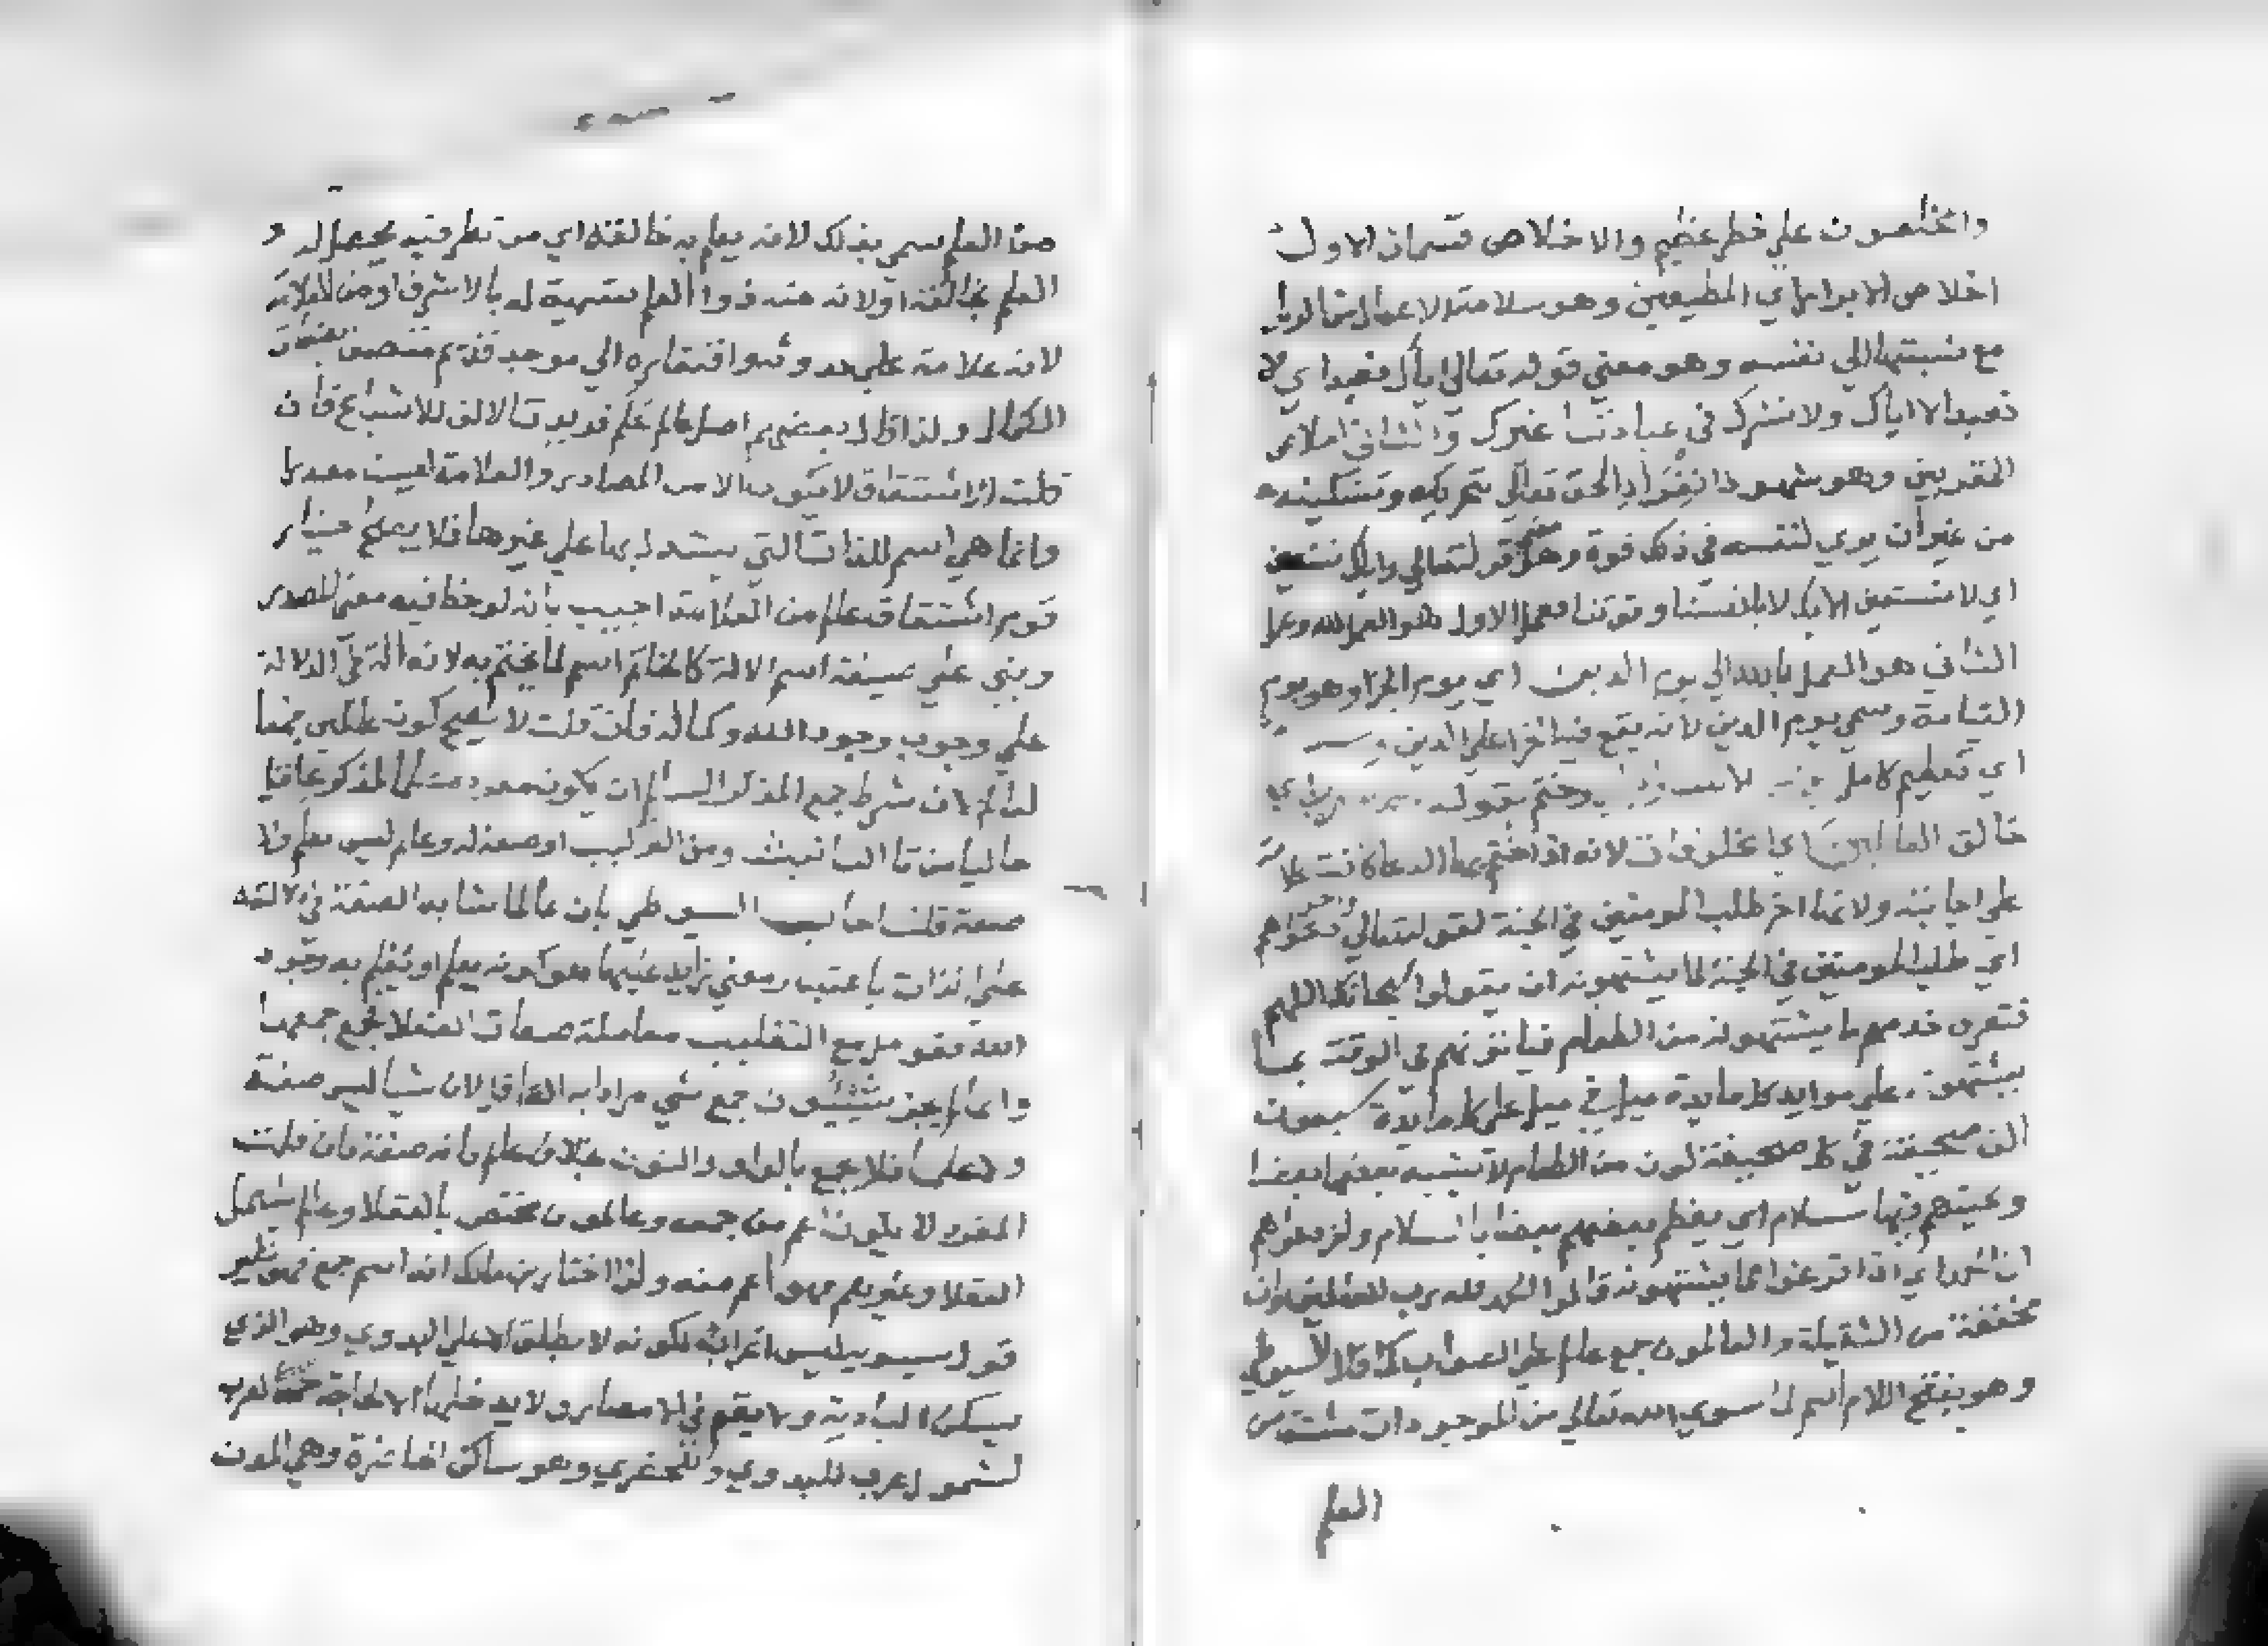 والمخلصون على خطر عظيم والاخلاص قسمان الاول
اخلاص الابرار اي المطيعين وهو سلامة الاعمال
مع نسبتها الي نفسه وهو معني قوله تعالي اياك نعبد اي لا
نعبد الا اياك ولا نشرك في عبادتنا غيرك والثاني اخلاص
المقربين وهو شهود انفراد الحق تعالي بتحريكه وتسكينه
من غير ان يري لنفسه في ذلك قوة وهو معني قوله تعالي واياك نستعين
اي لا نستعين الا بك لا بانفسنا وقوتنا فعمل الاول هو العمل لله وعمل
الثاني هو العمل بالله الي يوم الدين اي يوم الجزا وهو يوم
القيامة وسمي يوم الدين لانه يقع فيه الجزا علي الدين
اي تعظيم كامل وختم بقوله
خالق العالمين اي المخلوقات لانه اذا ختم بها الدعا كانت علامة
علي اجابته ولانها اخر طلب المومنين في الجنة لقوله تعالي واخر دعواهم
اي طلب المومنين في الجنة لما يشتهونه ان يقولوا سبحانك اللهم
فتعرف خدمهم ما يشتهونه من الطعام فياتونهم في الوقت بما
يشتهون علي موايد كل مايدة ميل في ميل علي كل مايدة سبعون
الف صحيفة في كل صحيفة لون من الطعام لا يشبه بعضها بعضا
وتحيتهم فيها سلام اي يعظم بعضهم بعضا بالسلام واخر دعواهم
ان الحمد اي اذا فرغوا مما يشتهونه قالوا الحمد لله رب العالمين وان
مخففة من الثقيلة والعالمون جمع عالم علي الصواب كما قاله السيوطي
وهو بفتح اللام اسم لما سوي الله تعالي من الموجودات مشتق من
العلم
من العلم سمي بذلك لانه يعلم به خالقه اي من نظر فيه يحصل له
العلم بخالقه اولانه منه ذوا العلم تسمية له بالاشرف او من العلامة
لانه علامة علي حدوثه وافتقاره الي موجد قديم متصف بصفات
الكمال ولذا قال بعضهم اصل عالم علم فزيدت الالف للاشباع فان
قلت الاشتقاق لا يكون الا من المصادر والعلامة ليست مصدرا
وانما هي اسم للذات التي يستدل بها علي غيرها فلا يصح حينئذ
قولهم اشتقاق عالم من العلامة اجيب بانه لوحظ فيه معني المصدر
وبني علي صيغة اسم الالة كالخاتم اسم لما يختم به لانه الة في الدلالة
علي وجوب وجود الله وكماله فان قلت لا يصح كون عالمين جمعا
لعالم لان شرط جمع المذكر السالم ان يكون مفرده علما لمذكر عاقل
خاليا من تا التانيث ومن التركيب او صفة له وعالم ليس بعلم ولا
صفة قلت اجاب السيوطي بان عالما شابه الصفة في دلالته
علي الذات باعتبار معني زايد عليها هو كونه يعلم او يعلم به وجود
الله فعومل مع التغليب معاملة صفات العقلا فجمع جمعها
وانما لم يجز شيئون جمع شي مرادا به العاقل لان شيا ليس صفة
ولا علما فلا يجمع بالواو والنون بخلاف عالم فانه صفة فان قلت
المفرد لا يكون اعم من جمعه وعالمون مختص بالعقلا وعالم يشمل
العقلا وغيرهم فهو اعم منه ولذا اختار بن مالك انه اسم جمع فهو نظير
قول سيبويه ليس اعرابا لكونه لا يطلق الا علي البدوي وهو الذي
يسكن البادية ولا يقيم في الامصار ولا يدخلها الا لحاجة جمعا لعرب
لشمول عرب للبدوي والحضري وهو ساكن الحاضرة وهي المدن